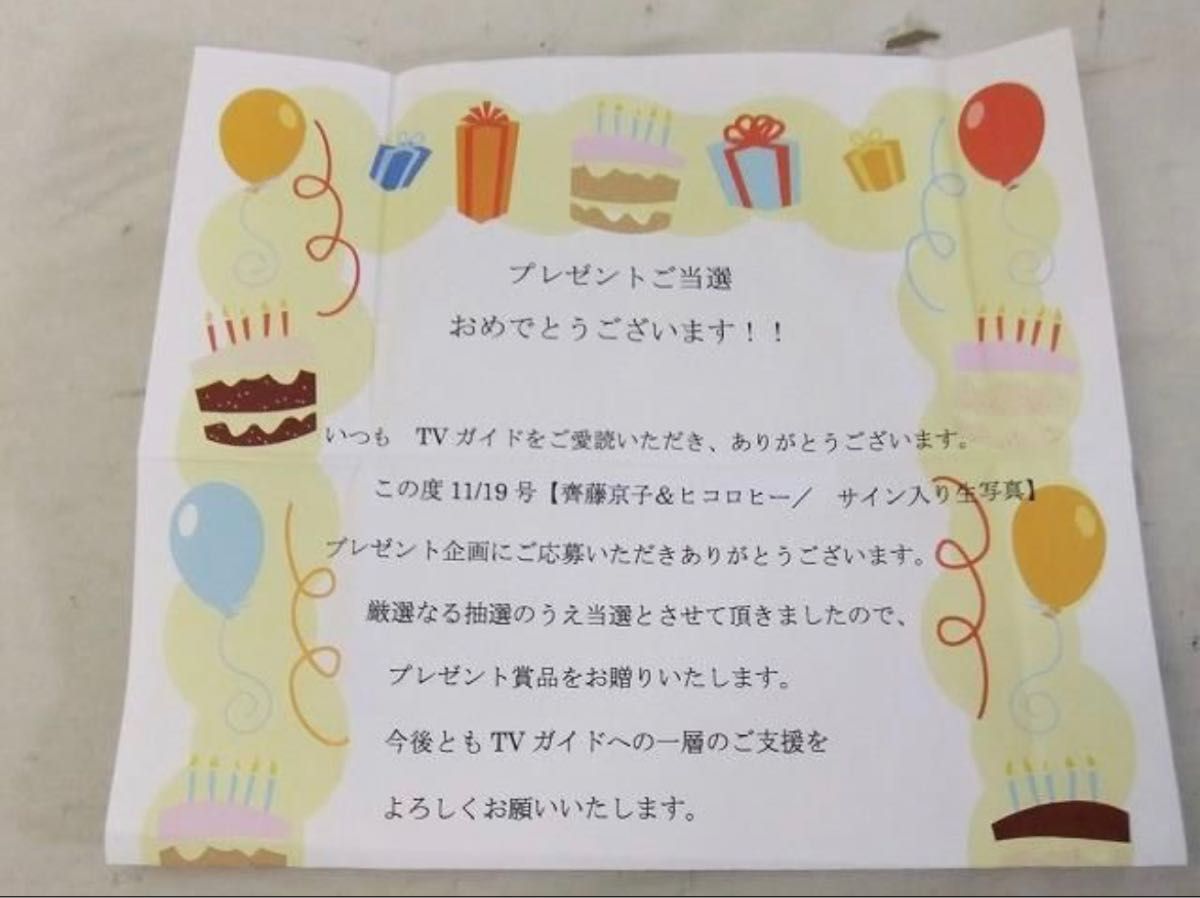 プレゼントご当選
おめでとうございます！！
いつも　TVガイドをご愛読いただき、ありがとうございます。
この度 11/19 号【齊藤京子＆ヒコロヒー／　サイン入り生写真】
プレゼント企画にご応募いただきありがとうございます。
厳選なる抽選のうえ当選とさせて頂きましたので、
プレゼント賞品をお贈りいたします。
今後とも TV ガイドへの一層のご支援を
よろしくお願いいたします。